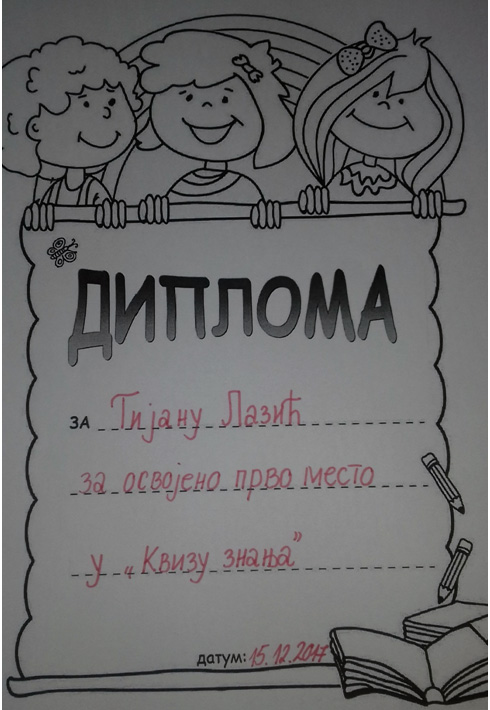 ДИПЛОМА
ЗА Тијану Лазић
за освојено прво место
у „Квизу знања”
датум: 15.12.2017